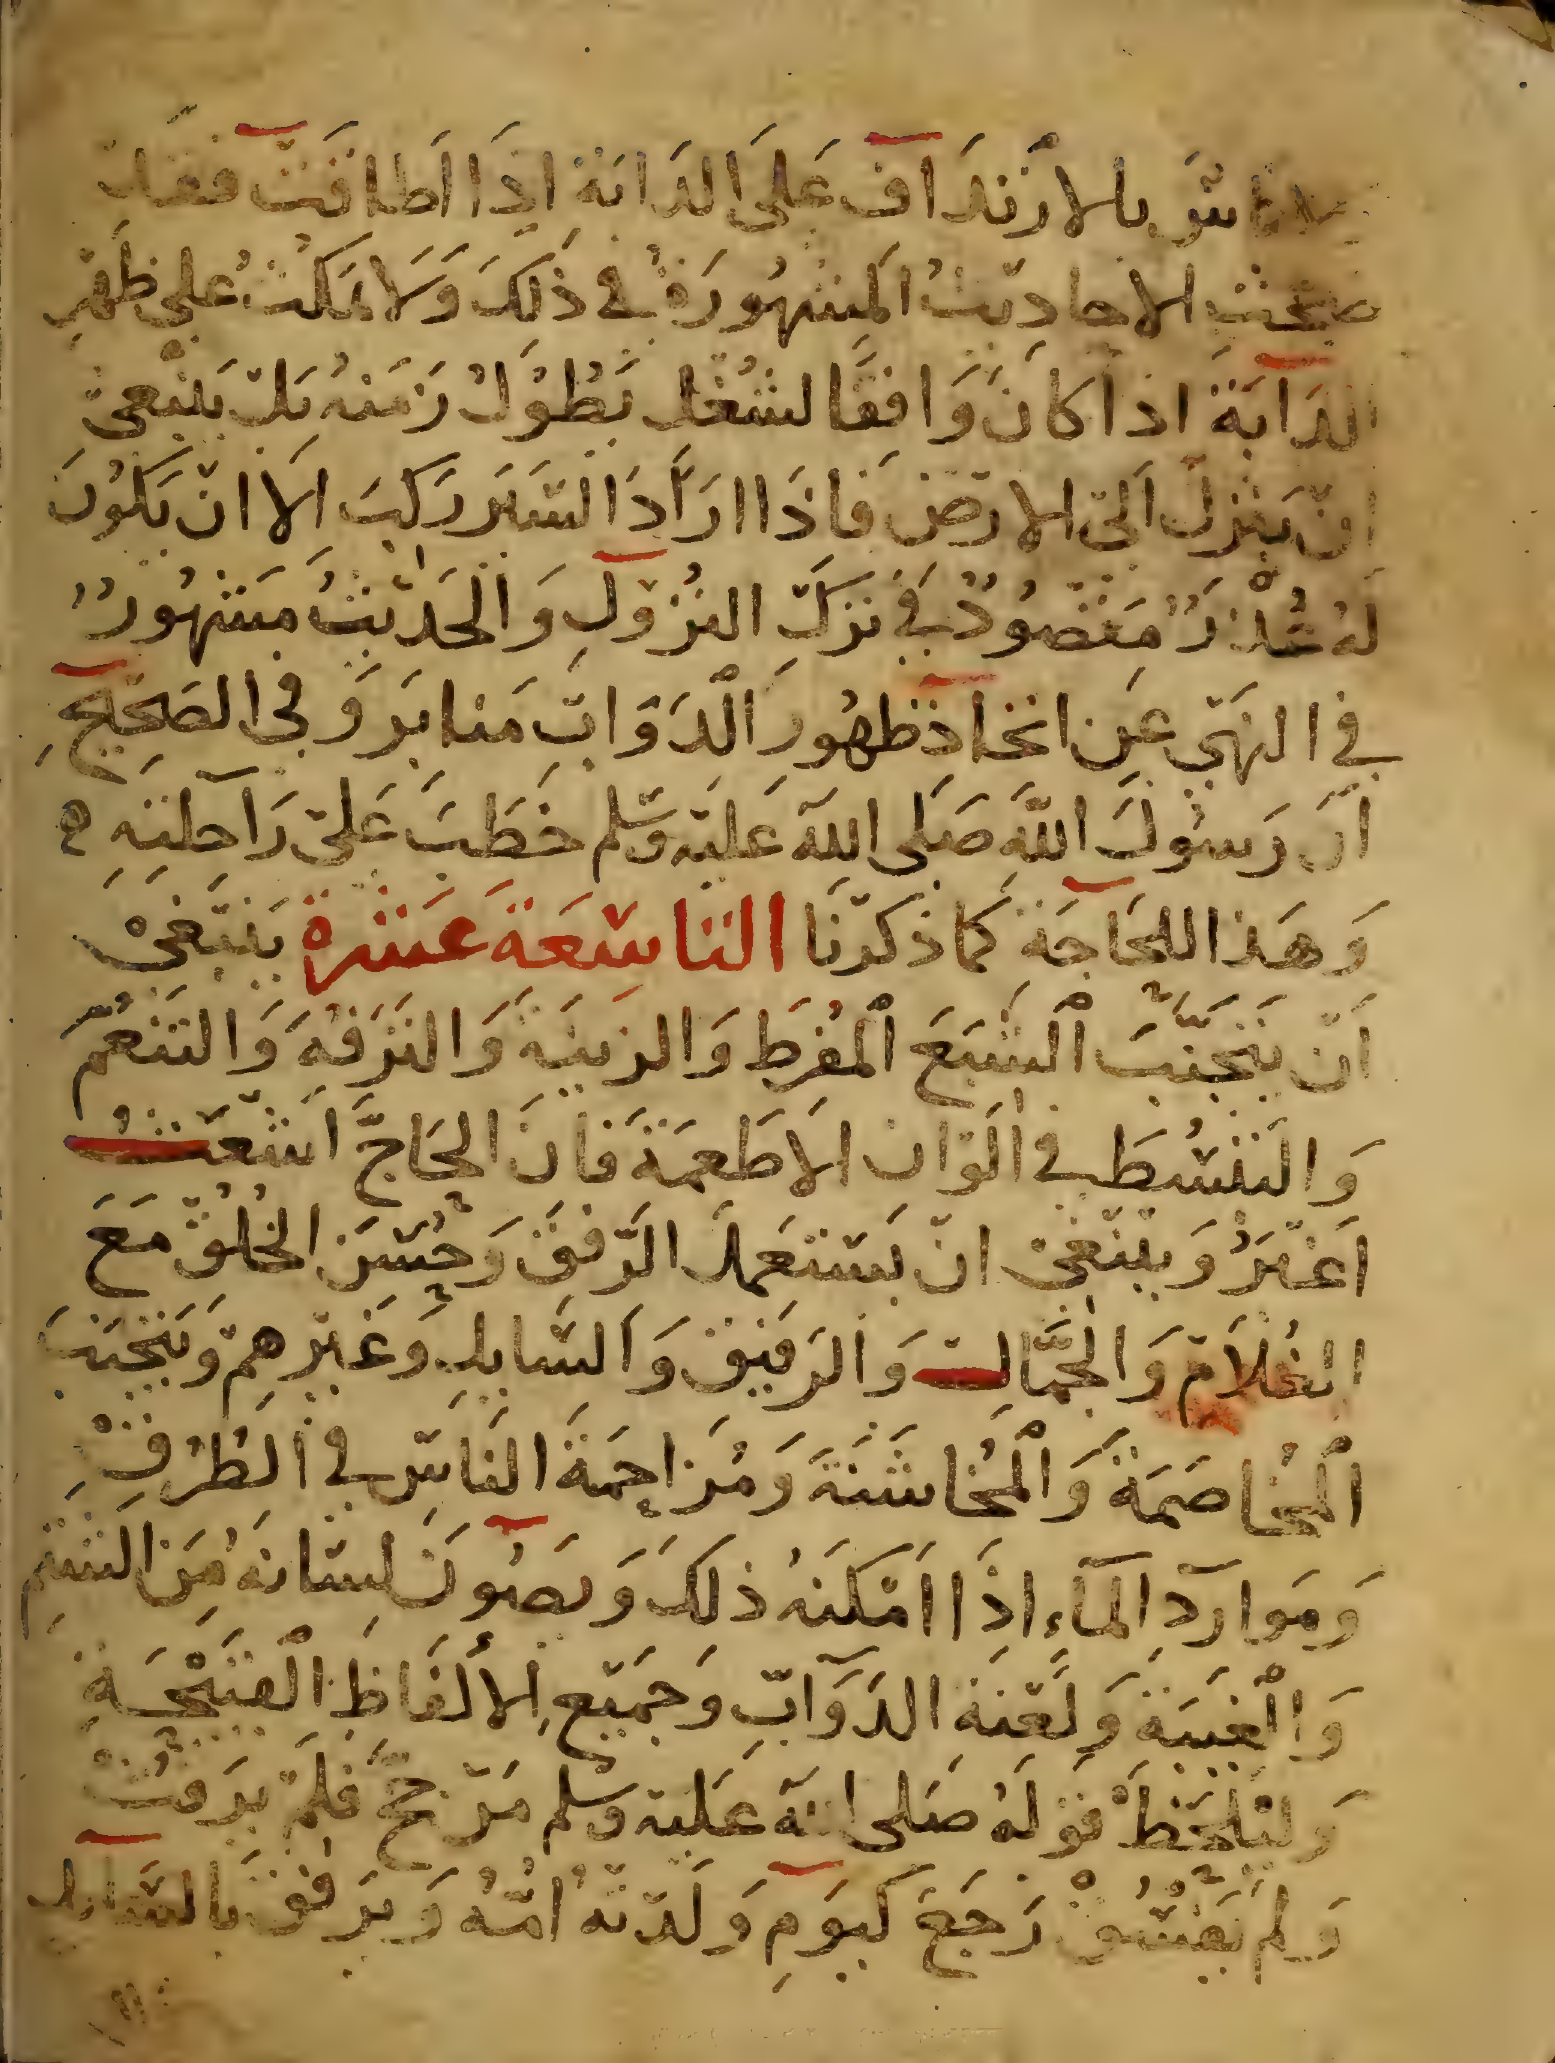 ولا باس بالارتداف على الدابة اذا اطاقت فقد
صحت الاحاديث المشهورة في ذلك ولا يمكث على ظهر
الدابة اذا كان واقفا لشغل يطول زمنه بل ينبغي
ان ينزل الى الارض فاذا اراد السير ركب الا ان يكون
له عذر مقصود في ترك النزول والحديث مشهور
في النهي عن اتخاذ ظهور الدواب منابر وفي الصحيح
ان رسول الله صلى الله عليه وسلم خطب على راحلته
وهذا للحاجة كما ذكرنا التاسعة عشرة ينبغي
ان يتجنب الشبع المفرط والزينة والترفه والتنعم
والتبسط في الوان الاطعمة فان الحاج اشعث
اغبر وينبغي ان يستعمل الرفق وحسن الخلق مع
الغلام والجمال والرفيق والسايل وغيرهم ويتجنب
المخاصمة والمخاشنة ومزاحمة الناس في الطرق
وموارد الماء اذا امكنه ذلك ويصون لسانه من الشتم
والغيبة ولعنة الدواب وجميع الألفاظ القبيحة
وليلحظ قوله صلى الله عليه وسلم من حج فلم يرفث
ولم يفسق رجع كيوم ولدته امه ويرفق بالسايل